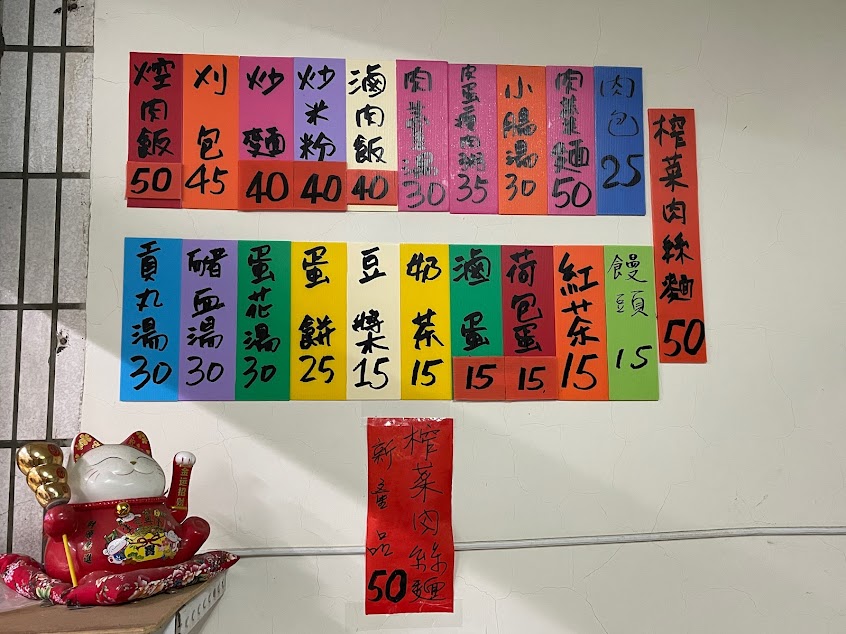 焢肉飯 50
刈包 45
炒麵 40
炒米粉 40
滷肉飯 40
肉羹湯 30
皮蛋瘦肉粥 35
小腸湯 30
肉 麵 50
肉包 25
榨菜肉絲麵 50
貢丸湯 30
豬血湯 30
蛋花湯 30
蛋餅 25
豆漿 15
奶茶 15
滷蛋 15
荷包蛋 15
紅茶 15
饅頭 15
榨菜肉絲麵
新產品 50